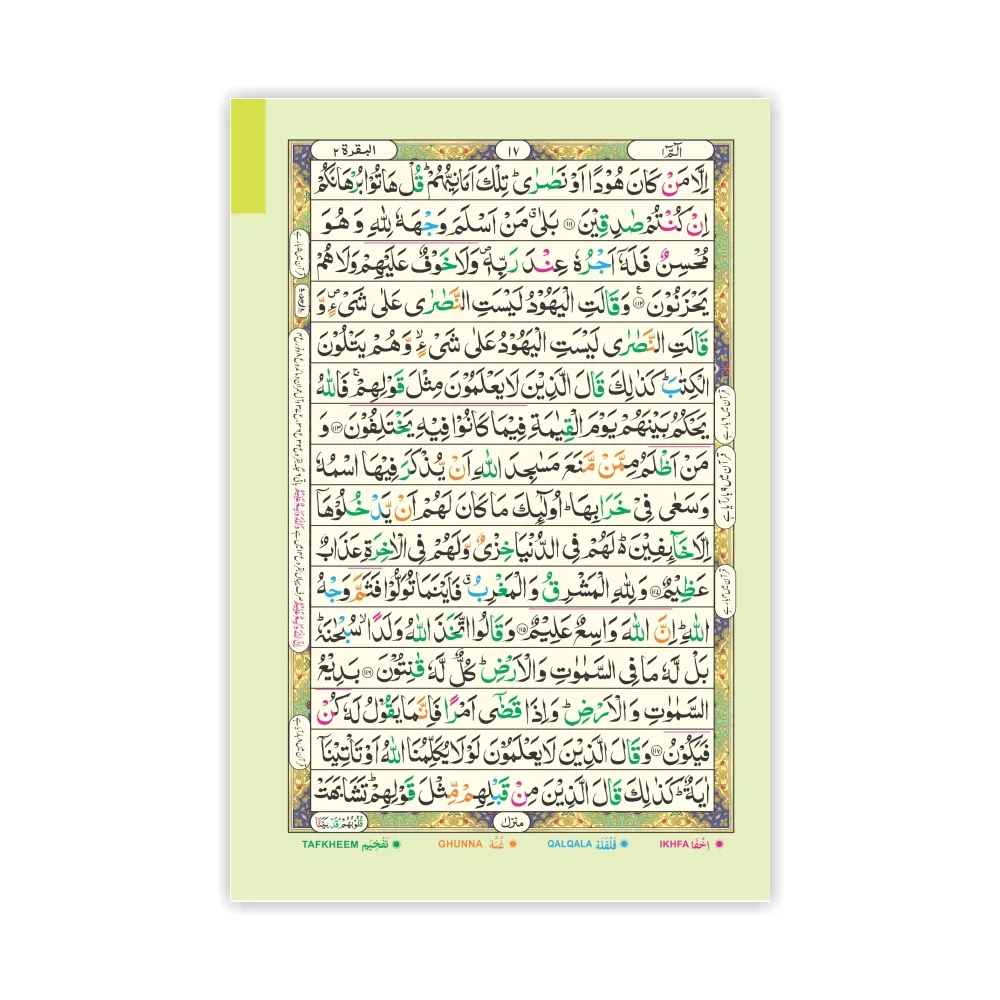 البقرة ٢
١٧
الٓمّٓ ١
اِلَّا مَنْ كَانَ هُوْدًا اَوْ نَصٰرٰىؕ تِلْكَ اَمَانِیُّهُمْؕ قُلْ هَاتُوْا بُرْهَانَكُمْ
اِنْ كُنْتُمْ صٰدِقِیْنَ ۝۱۱۱ بَلٰىۗ مَنْ اَسْلَمَ وَجْهَهٗ لِلّٰهِ وَ هُوَ
مُحْسِنٌ فَلَهٗۤ اَجْرُهٗ عِنْدَ رَبِّهٖ۪ وَلَا خَوْفٌ عَلَیْهِمْ وَلَا هُمْ
یَحْزَنُوْنَ ۝۱۱۲ وَقَالَتِ الْیَهُوْدُ لَیْسَتِ النَّصٰرٰى عَلٰى شَیْءٍ۪ وَّ
قَالَتِ النَّصٰرٰى لَیْسَتِ الْیَهُوْدُ عَلٰى شَیْءٍۙ وَّهُمْ یَتْلُوْنَ
الْكِتٰبَؕ كَذٰلِكَ قَالَ الَّذِیْنَ لَا یَعْلَمُوْنَ مِثْلَ قَوْلِهِمْۚ فَاللّٰهُ
یَحْكُمُ بَیْنَهُمْ یَوْمَ الْقِیٰمَةِ فِیْمَا كَانُوْا فِیْهِ یَخْتَلِفُوْنَ ۝۱۱۳ وَ
مَنْ اَظْلَمُ مِمَّنْ مَّنَعَ مَسٰجِدَ اللّٰهِ اَنْ یُّذْكَرَ فِیْهَا اسْمُهٗ
وَسَعٰى فِیْ خَرَابِهَاؕ اُولٰٓىِٕكَ مَا كَانَ لَهُمْ اَنْ یَّدْخُلُوْهَاۤ
اِلَّا خَآىِٕفِیْنَ۬ؕ لَهُمْ فِی الدُّنْیَا خِزْیٌ وَّلَهُمْ فِی الْاٰخِرَةِ عَذَابٌ
عَظِیْمٌ ۝۱۱۴ وَلِلّٰهِ الْمَشْرِقُ وَالْمَغْرِبُۗ فَاَیْنَمَا تُوَلُّوْا فَثَمَّ وَجْهُ
اللّٰهِؕ اِنَّ اللّٰهَ وَاسِعٌ عَلِیْمٌ ۝۱۱۵ وَقَالُوا اتَّخَذَ اللّٰهُ وَلَدًاۙ سُبْحٰنَهٗؕ
بَلْ لَّهٗ مَا فِی السَّمٰوٰتِ وَالْاَرْضِؕ كُلٌّ لَّهٗ قٰنِتُوْنَ ۝۱۱۶ بَدِیْعُ
السَّمٰوٰتِ وَالْاَرْضِؕ وَاِذَا قَضٰۤى اَمْرًا فَاِنَّمَا یَقُوْلُ لَهٗ كُنْ
فَیَكُوْنُ ۝۱۱۷ وَقَالَ الَّذِیْنَ لَا یَعْلَمُوْنَ لَوْلَا یُكَلِّمُنَا اللّٰهُ اَوْ تَاْتِیْنَاۤ
اٰیَةٌؕ كَذٰلِكَ قَالَ الَّذِیْنَ مِنْ قَبْلِهِمْ مِّثْلَ قَوْلِهِمْؕ تَشَابَهَتْ
قُلُوْبُهُمْ قَدْ بَیَّنَّا
منزل ١
IKHFA اِخْفَا
QALQALA قَلْقَلَة
GHUNNA غُنَّة
TAFKHEEM تَفْخِیْم